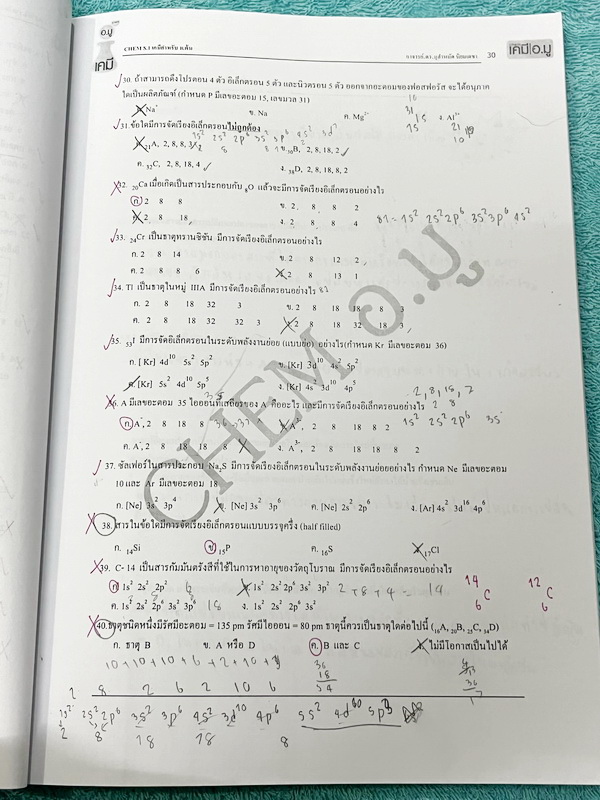 อ.มู
เคมี
CHEM S.1 เคมีสำหรับ ม.ต้น
30
เคมี อ.มู
30. ถ้าสามารถดึงโปรตอน 4 ตัว อิเล็กตรอน 5 ตัว และนิวตรอน 5 ตัว ออกจากอะตอมของฟอสฟอรัส จะได้อนุภาค
ใดเป็นผลิตภัณฑ์ (กำหนด P มีเลขอะตอม 15, เลขมวล 31)
ก. Na⁺ ข. Na ค. Mg²⁺ ง. Al³⁺
31. ข้อใดมีการจัดเรียงอิเล็กตรอนไม่ถูกต้อง
ก. ₂₁A, 2, 8, 8, 3 ข. ₃₀B, 2, 8, 18, 2
ค. ₃₂C, 2, 8, 18, 4 ง. ₃₈D, 2, 8, 18, 8, 2
32. ₂₀Ca เมื่อเกิดเป็นสารประกอบกับ ₈O แล้วจะมีการจัดเรียงอิเล็กตรอนอย่างไร
ก. 2 8 8 ข. 2 8 8 2
ค. 2 8 18 ง. 2 8 8 4
1s² 2s² 2p⁶ 3s² 3p⁶ 4s²
33. ₂₄Cr เป็นธาตุทรานซิชัน มีการจัดเรียงอิเล็กตรอนอย่างไร
ก. 2 8 14 ข. 2 8 12 2
ค. 2 8 8 6 ง. 2 8 13 1
34. Tl เป็นธาตุในหมู่ IIIA มีการจัดเรียงอิเล็กตรอนอย่างไร
ก. 2 8 18 32 3 ข. 2 8 18 18 8 3
ค. 2 8 18 32 32 3 ง. 2 8 18 32 18 3
35. ₅₃I มีการจัดอิเล็กตรอนในระดับพลังงานย่อย (แบบย่อ) อย่างไร(กำหนด Kr มีเลขอะตอม 36)
ก. [Kr] 4d¹⁰ 5s² 5p² ข. [Kr] 3d¹⁰ 4s² 5p²
ค. [Kr] 5s² 4d¹⁰ 5p⁵ ง. [Kr] 4s² 3d¹⁰ 4p⁵
36. A มีเลขอะตอม 35 ไอออนที่เสถียรของ A คืออะไร และมีการจัดเรียงอิเล็กตรอนอย่างไร
ก. A⁻, 2 8 18 8 ข. A, 2 8 18 8 2
ค. A⁻, 2 8 18 18 8 ง. A, 2 8 18 18 8 2
37. ซัลเฟอร์ในสารประกอบ Na₂S มีการจัดเรียงอิเล็กตรอนในระดับพลังงานย่อยอย่างไร กำหนด Ne มีเลขอะตอม
10 และ Ar มีเลขอะตอม 18
ก. [Ne] 3s² 3p⁴ ข. [Ne] 3s² 3p⁶ ค. [Ne] 2s² 2p⁶ ง. [Ar] 4s² 3d¹⁰ 4p⁶
38. สารในข้อใดมีการจัดเรียงอิเล็กตรอนแบบบรรจุครึ่ง (half filled)
ก. ₁₄Si ข. ₁₅P ค. ₁₆S ง. ₁₇Cl
39. C- 14 เป็นสารกัมมันตรังสีที่ใช้ในการหาอายุของวัตถุโบราณ มีการจัดเรียงอิเล็กตรอนอย่างไร
ก. 1s² 2s² 2p² ข. 1s² 2s² 2p⁶ 3s² 3p² 2 + 8 + 4 = 14
ค. 1s² 2s² 2p⁶ 3s² 3p⁶ 18 ง. 1s² 2s² 2p⁶ 3s²
14 C 6
12 C 6
40. ธาตุชนิดหนึ่งมีรัศมีอะตอม = 135 pm รัศมีไอออน = 80 pm ธาตุนี้ควรเป็นธาตุใดต่อไปนี้ (₁₆A, ₂₀B, ₂₅C, ₃₄D)
ก. ธาตุ B ข. A หรือ D ค. B และ C ง. ไม่มีข้อมูลเป็นไปได้
2 8 2 6 2 10 6
1s² 2s² 2p⁶ 3s² 3p⁶ 4s² 3d¹⁰ 4p⁶ 5s² 4d
2 8 18 18 8
CHEM อ.มู